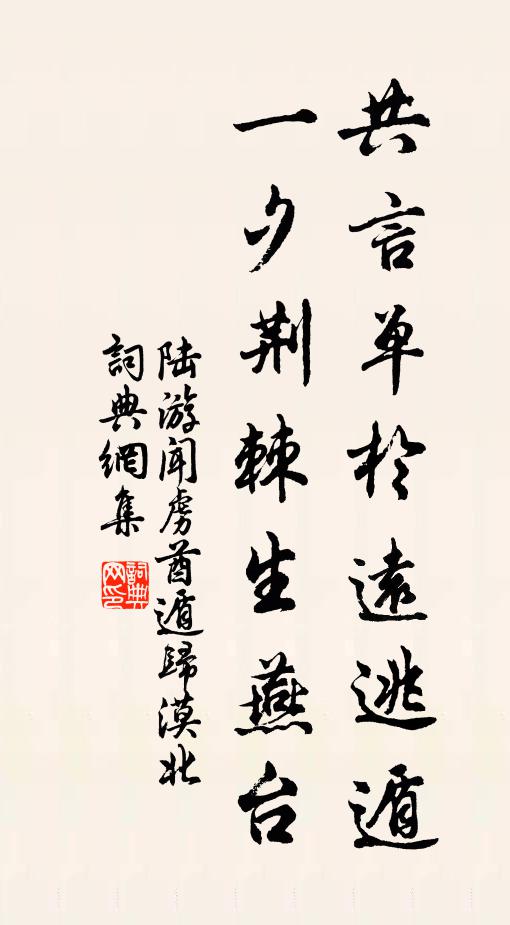 共言单於遠逃遁
一夕荆棘生燕台
陆游闻虏酋遁歸漠北
詞典網集
詞典網印